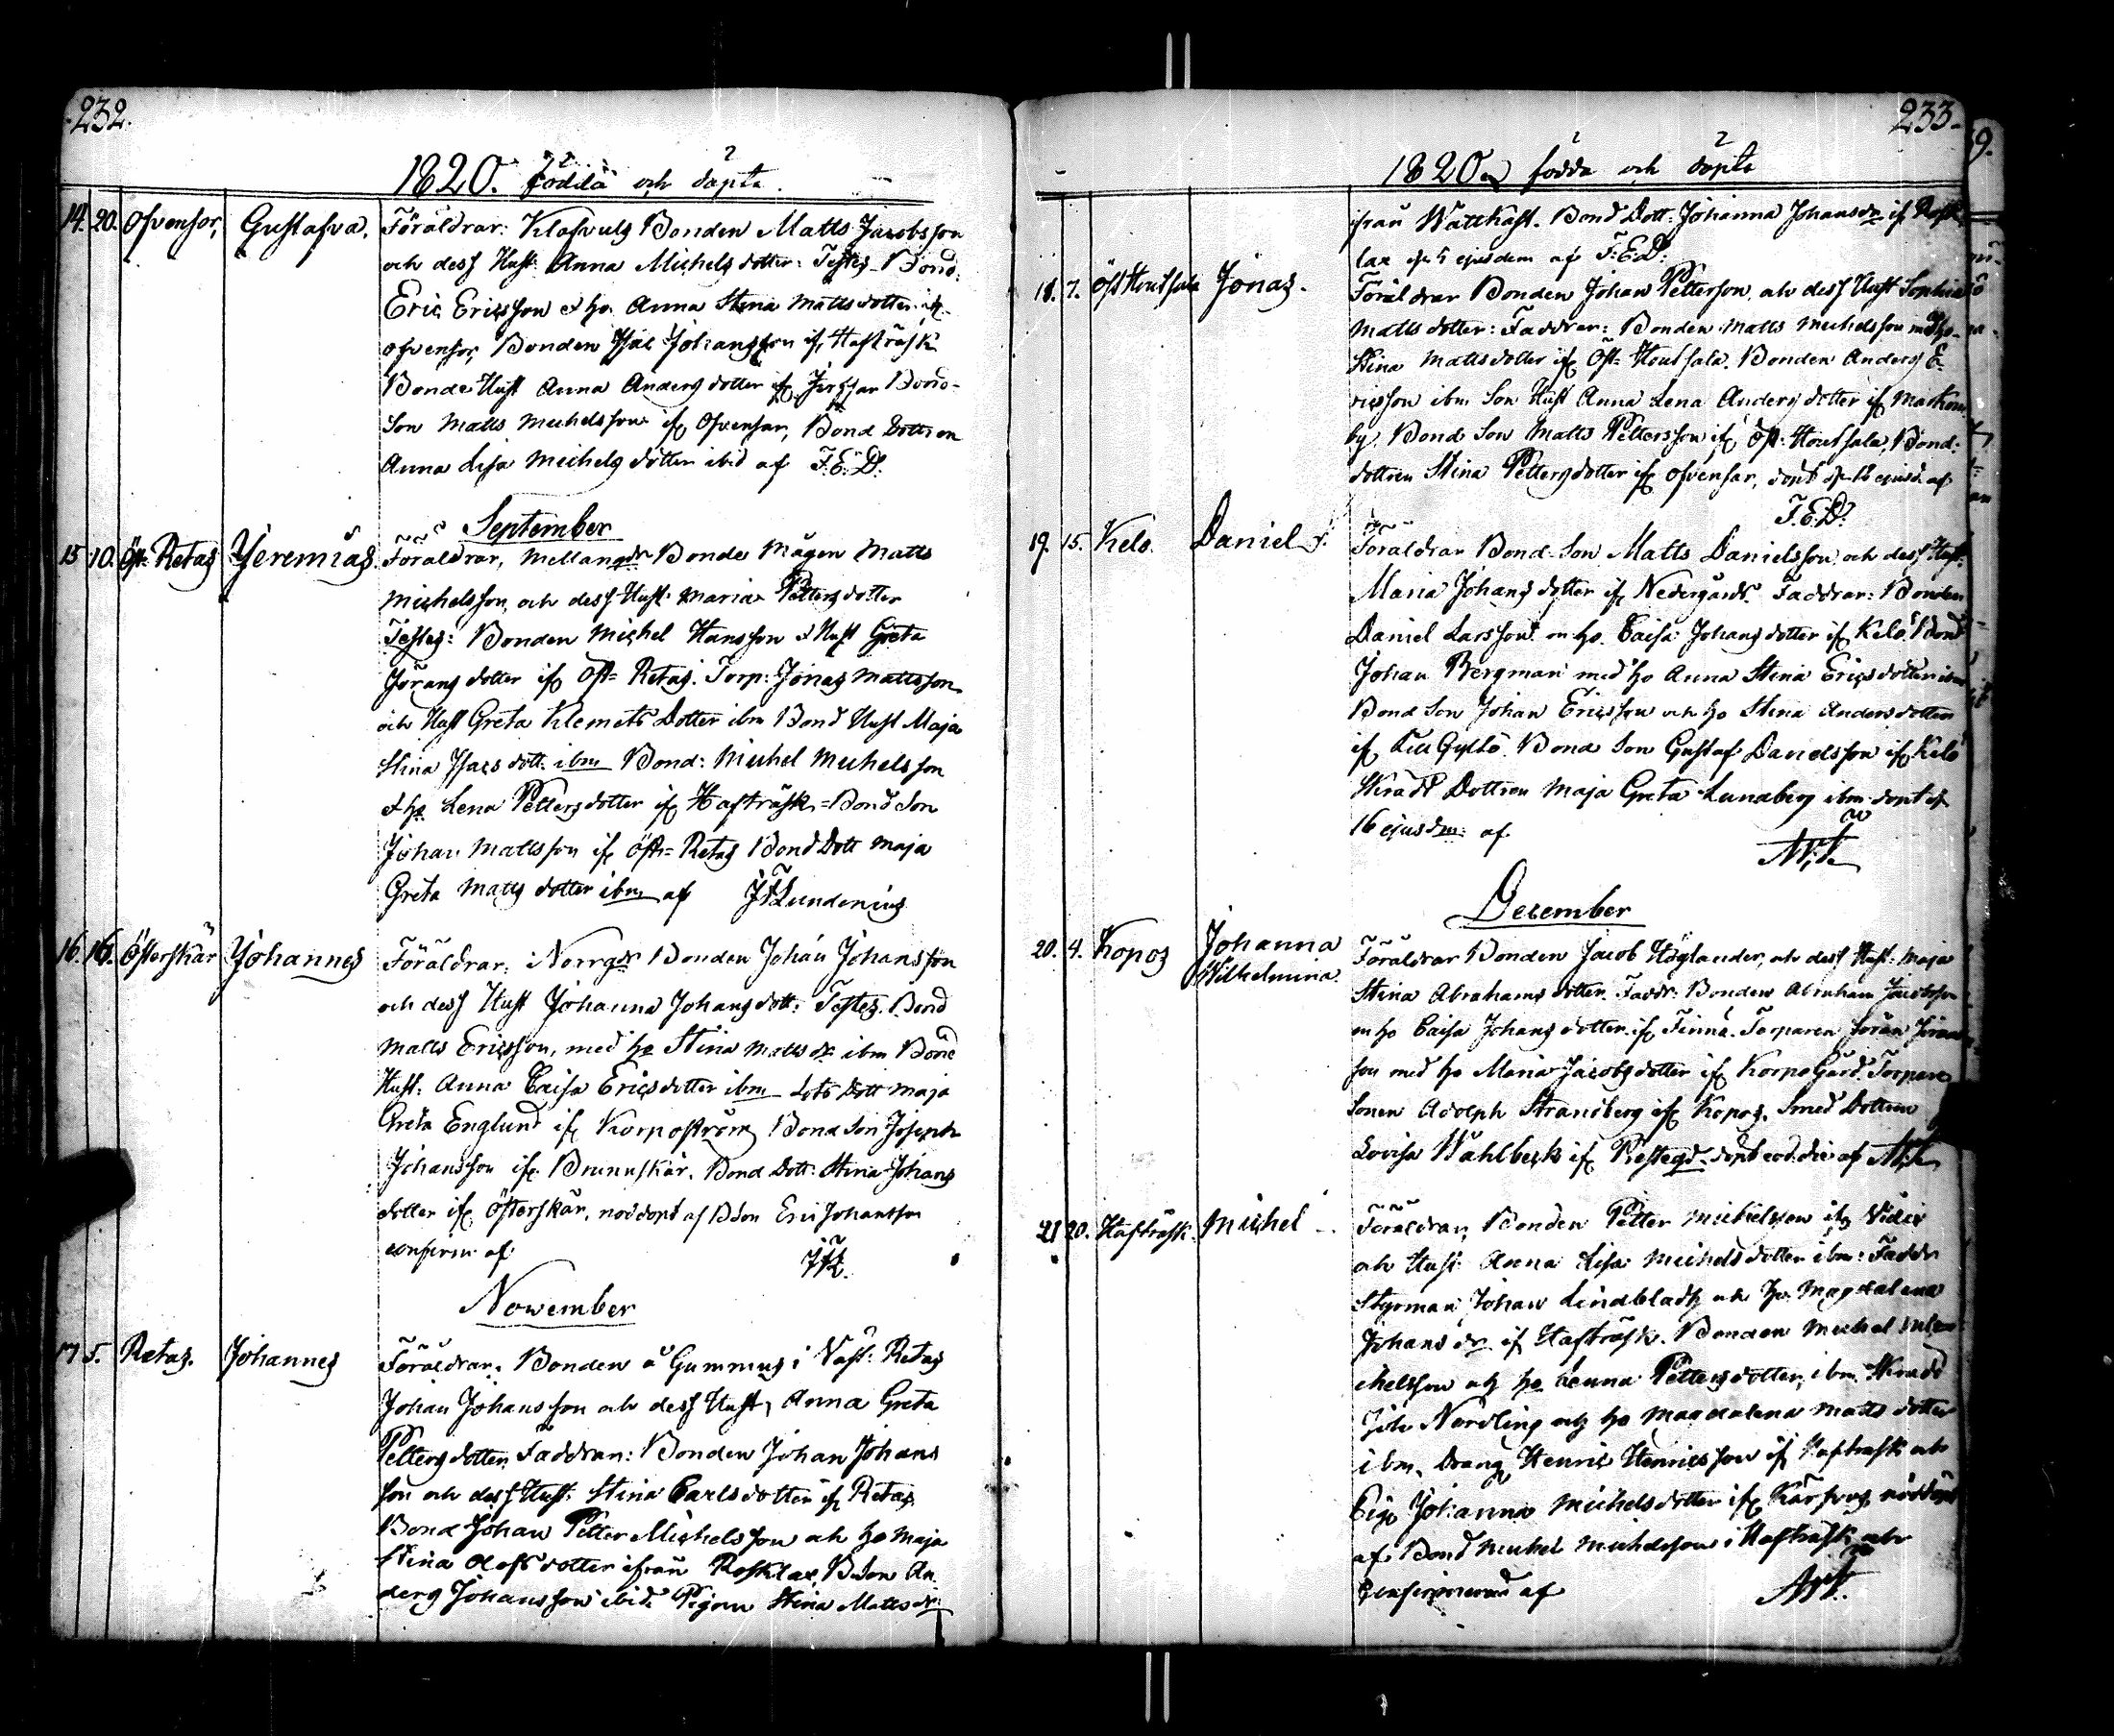 232.
1820. födda och döpta.
14. 20. Ofvensor, Gustafva. Föräldrar: Klasvuls Bonden Matts Jacobsson
och dess Hust. Anna Michels dotter: Testes Bond:
Eric Ericsson & ho. Anna Stina Matts dotter
ofvensor, Bonden Isac Johansson if. Hafträsk
Bonde Hust Anna Anders dotter if Jirssar Bond-
Son Matts Michelsson if Ofvensar, Bond Dottren
Anna Lisa Michels dotter ibid af F.E.D.
September
15 10. Öst Retas Yeremias Föräldrar, Mellangds Bonde Mågen Matts
Michelsson, och dess Hust. Maria Petters dotter
Testes: Bonden Michel Hansson & Hust Greta
Jörans dotter if Öst= Retas. Torp: Jonas Mattsson
och Hust Greta Klemets Dotter ibm Bond Hust Maja
Stina Isacs dott: ibm Bond: Michel Michelsson
& ho Lena Petters dotter if Hafträsk= Bond Son
Johan Mattsson if Öst= Retas Bond Dott Maja
Greta Matts dotter ibm af JFLundenius
16. 16. Österskär Yohannes Föräldrar: Norrgds Bonden Johan Johansson
och dess Hust Johanna Johans dott: Testes. Bond
Matts Ericsson, med ho Stina Matts dr ibm Bond
Hust: Anna Caisa Erics dotter ibm Lots Dott Maja
Greta Englund if Korpoström Bond Son Joseph
Johansson if Brunnskär. Bond Dott: Stina Johans
dotter if Österskär, nöddöpt af Bson Eric Johansson
confirm af JFL.
November
17 5. Retas. Johannes Föräldrar: Bonden å Gummus i Väst: Retas
Johan Johansson och dess Hust, Anna Greta
Petters dotter Faddrar: Bonden Johan Johans
son och dess Hust. Stina Carls dotter if Retas
Bond Johan Petter Michelsson och ho Maja
Stina Olofs dotter ifrån Rosklax, B.Son An
ders Johansson ibid. Pigan Stina Matts dr
233.
1820 födda och döpta
ifrån Wattkast. Bond Dott: Johanna Johans dr if Rosk
lax ejusdem af F.E.D.
18. 7. Öst Houtsala Jonas. Föräldrar Bonden Johan Petterson och dess Hust Sophia
Matts dotter: Faddrar: Bonden Matts Michelsson med ho
Stina Matts dotter if Öst= Houtsala. Bonden Anders E-
ricsson ibm Son Hust Anna Lena Anders dotter if Markom
by Bond Son Matts Pettersson if Öst= Houtsala, Bond:
dottren Stina Petters dotter if Ofvensar, döpt ejusd. af
F.E.D.
19. 15. Kelö. Daniel Föräldrar Bond Son Matts Danielsson och dess Hust:
Maria Johans dotter if Nedergårds. Faddrar: Bonden
Daniel Larsson m ho. Caisa Johans dotter if Kelö Bond
Johan Bergman med ho Anna Stina Erics dotter ibm
Bond Son Johan Ericsson och ho Stina Anders dotter
if Lill Gyltö Bond Son Gustaf Danielsson if Kelö
Skradd Dottren Maja Greta Lundberg ibm döpt d
16 ejusdm: af
December
20. 4. Kopos Johanna
Wilhelmina. Föräldrar Bonden Jacob Höglander, och dess Hust: Maja
Stina Abrahams dotter. Faddr: Bonden Abraham Jacobsson
m ho Caisa Johans dotter if Finnå. Torparen Jöran Jörans
son med ho Maria Jacobs dotter if Korpo Gård. Torpare
Sonen Adolph Strandberg if Kopos, Smed Dottren
Lovisa Wahlbeck if Prestegd. döpt eod. die af
21 20. Hafträsk. Michel Föräldrar, Bonden Petter Michelsson
och Hust. Anna Lisa Michels dotter ibm: Faddr
Styrman Johan Lindbladh och ho. Magdalena
Johans dr if Hafträsk. Bonden Michel Mi
chelsson och ho Lenna Petters dotter, ibm. Skradd
Joh Nordling och ho Magdalena Matts dotter
ibm. Dräng Henric Henricsson if Hafträsk och
Pig. Johanna Michels dotter if Kärfvus nöddöpt
af Bond Michel Michelsson i Hafträsk och
confirmerad af